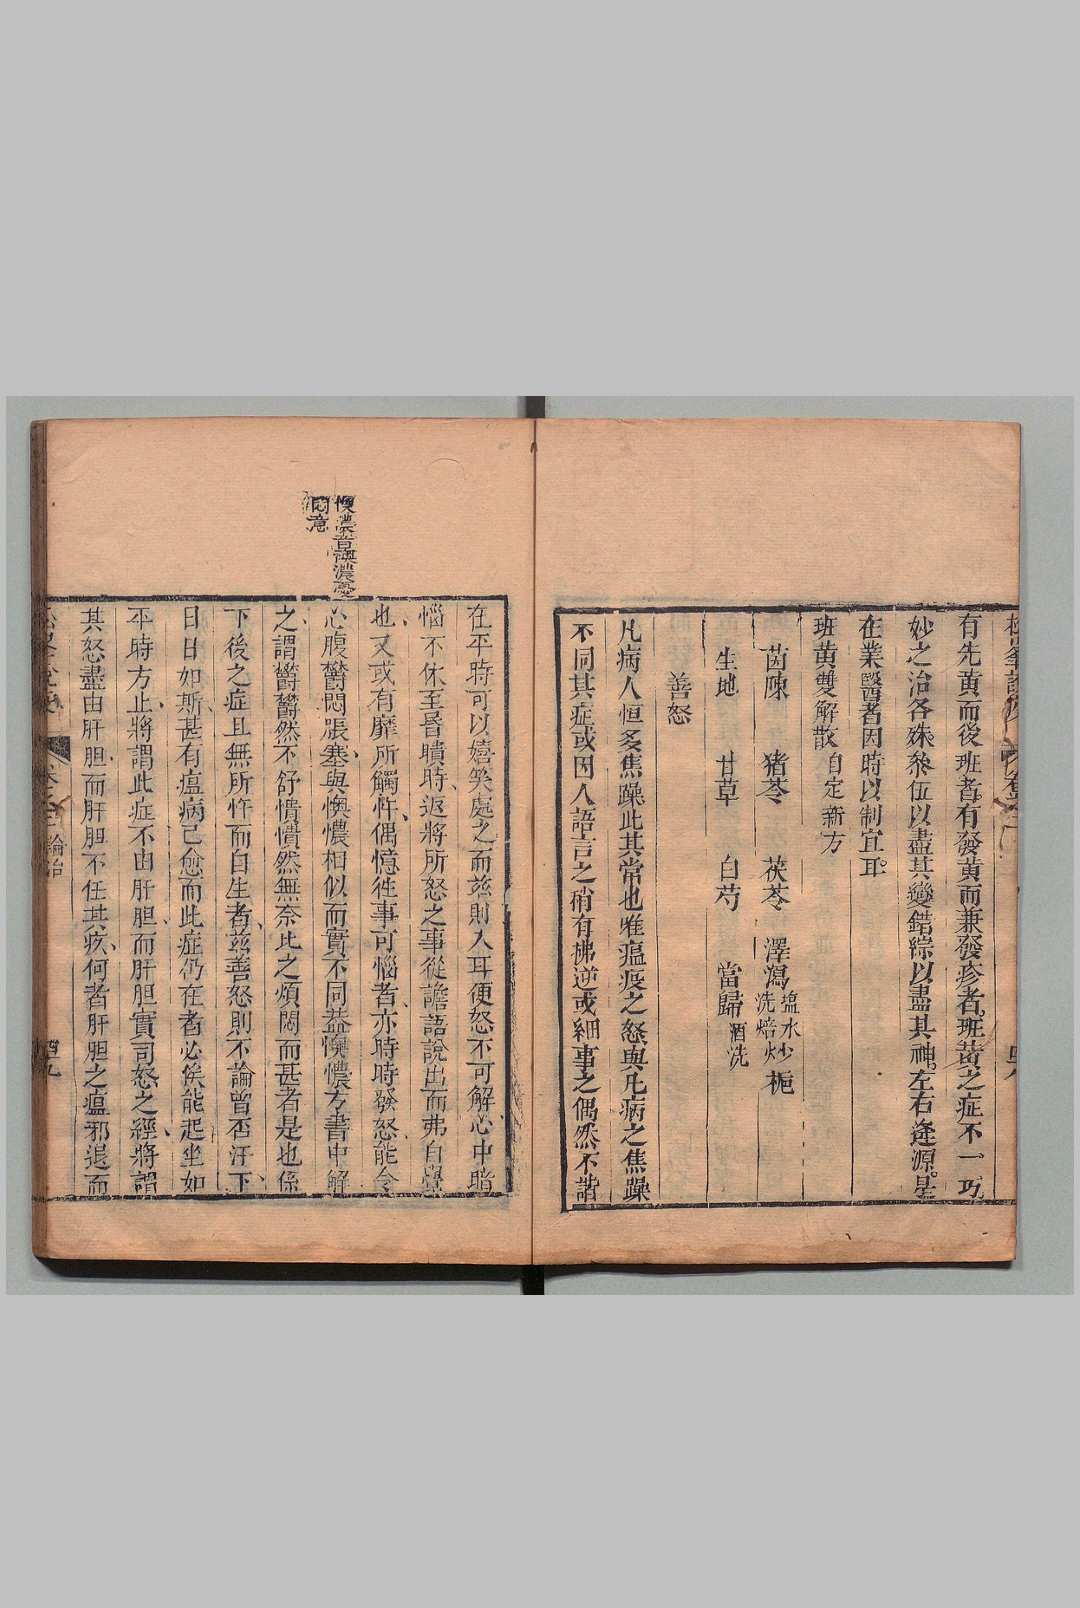 有先黄而後班者有發黄而兼發疹者班黄之症不一巧
妙之治各殊叅伍以盡其變錯綜以盡其神左右逢源是
在業醫者因時以制宜耳
班黄雙解散 自定新方
茵陳 猪苓 茯苓 澤瀉 塩水洗焙炒 栀
生地 甘草 白芍 當歸 酒洗
善怒
凡病人恒多焦躁此其常也唯瘟疫之怒與凡病之焦躁
不同其症或因人語言之稍有拂逆或細事之偶然不諧
在平時可以嬉笑處之而茲則入耳便怒不可解心中暗
惱不休至昏瞶時返將所怒之事從譫語說出而弗自覺
也又或有靡所觸忤偶憶徃事可惱者亦時時發怒能令
心腹欝悶脹塞與懊憹相似而實不同葢懊憹方書中解
之謂欝欝然不舒憒憒然無奈比之煩悶而甚者是也係
下後之症且無所忤而自生者茲善怒則不論曾否汗下
日日如斯甚有瘟病已愈而此症仍在者必俟能起坐如
平時方止將謂此症不由肝胆而肝胆實司怒之經將謂
其怒盡由肝胆而肝胆不任其疚何者肝胆之瘟邪退而
懊憹音襖濃憂
悶意
論治